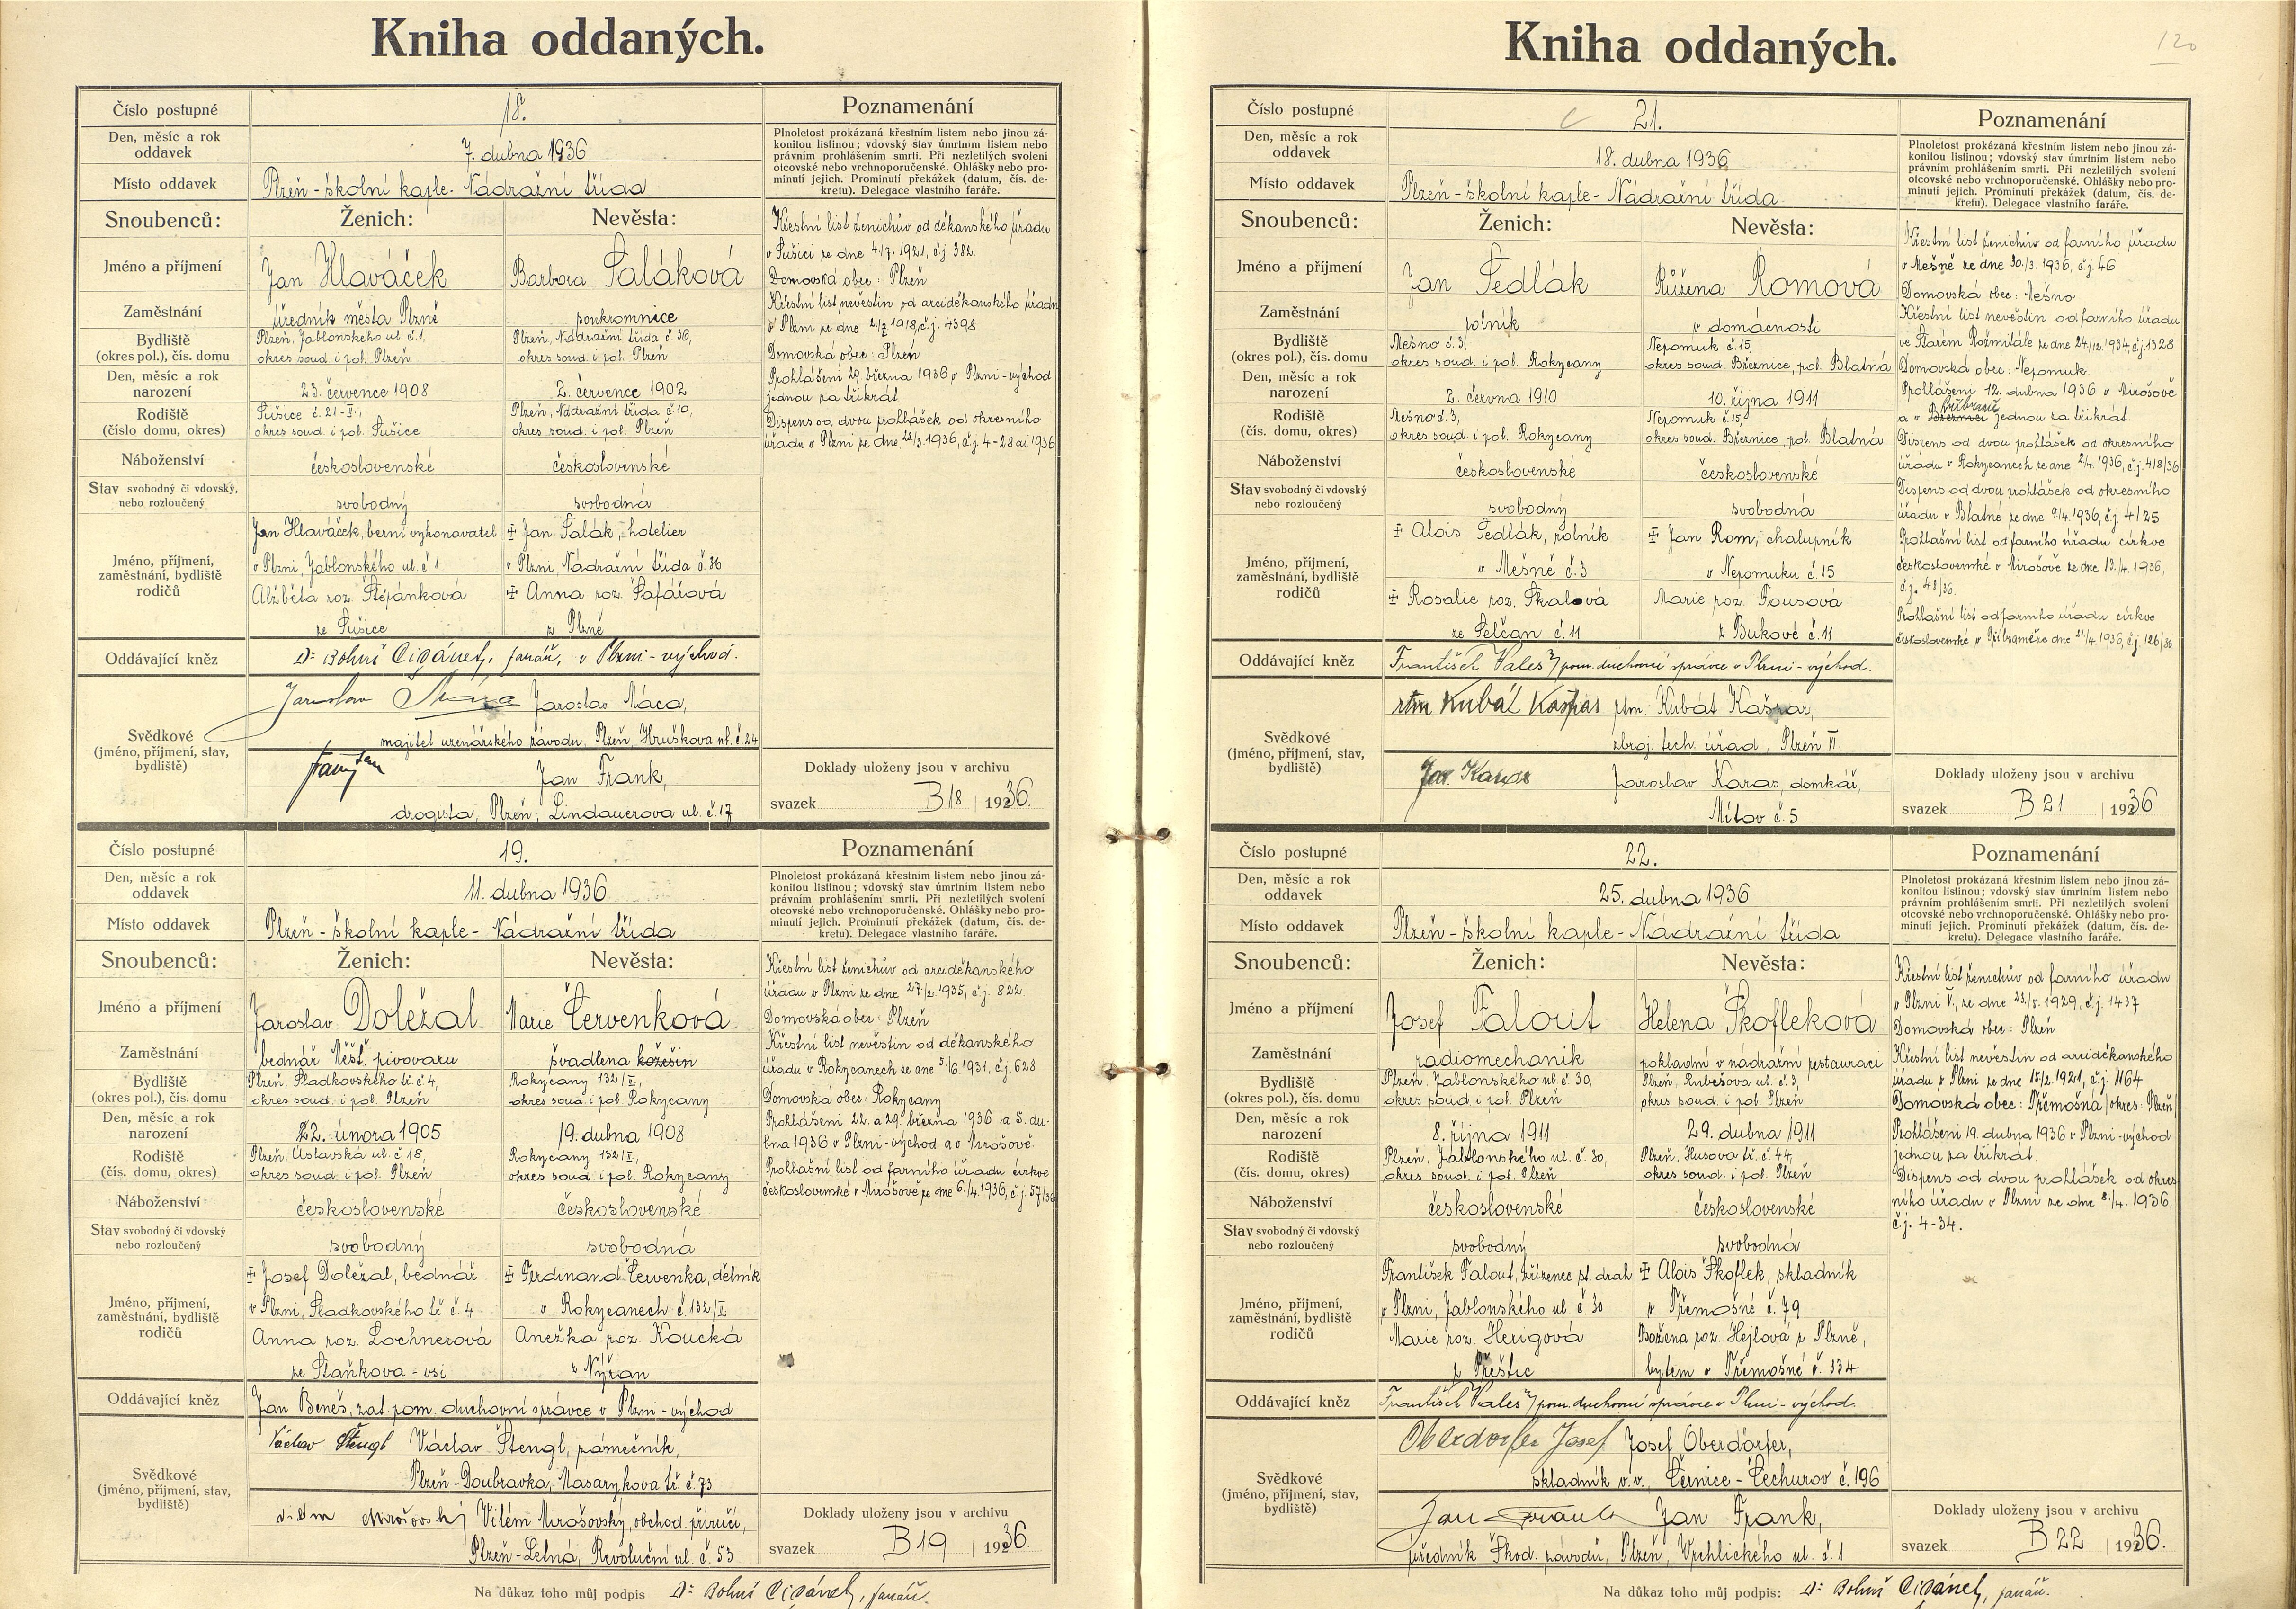 Kniha oddaných.
Číslo postupné
18.
Poznamenání
Den, měsíc a rok
oddavek
7. dubna 1936
Plnoletost prokázaná křestním listem nebo jinou zá-
konitou listinou; vdovský stav úmrtním listem nebo
právním prohlášením smrti. Při nezletilých svolení
otcovské nebo vrchnoporučenské. Ohlášky nebo pro-
minutí jejich. Prominutí překážek (datum, čís. de-
kretu). Delegace vlastního faráře.
Místo oddavek
Plzeň - školní kaple - Nádražní třída
Snoubenců:
Ženich:
Nevěsta:
Jméno a příjmení
Jan Hlaváček
Barbora Šaláková
Zaměstnání
úředník města Plzně
soukromnice
Bydliště
(okres pol.), čís. domu
Plzeň, Jablonského ul. č. 1,
okres soud. i pol. Plzeň
Plzeň, Nádražní třída č. 36,
okres soud. i pol. Plzeň
Den, měsíc a rok
narození
23. července 1908
2. července 1902
Rodiště
(číslo domu, okres)
Sušice č. 21-II.,
okres soud. i pol. Sušice
Plzeň, Nádražní třída č. 10,
okres soud. i pol. Plzeň
Náboženství
československé
československé
Stav svobodný či vdovský,
nebo rozloučený
svobodný
svobodná
Jméno, příjmení,
zaměstnání, bydliště
rodičů
Jan Hlaváček, berní vykonavatel
v Plzni, Jablonského ul. č. 1
Alžběta roz. Štěpánková
ze Sušice
‡ Jan Šalák, hotelier
v Plzni, Nádražní třída č. 36
‡ Anna roz. Šafářová
z Plzně
Křestní list ženichův od děkanského úřadu
v Sušici ze dne 4./7. 1921, č.j. 382.
Domovská obec: Plzeň
Křestní list nevěstin od arciděkanského úřadu
v Plzni ze dne 2/7 1918, č.j. 4398
Domovská obec: Plzeň
Prohlášení 29. března 1936 v Plzni-východ
jednou za třikrát.
Dispens od dvou prohlášek od okresního
úřadu v Plzni ze dne 28/3. 1936, č.j. 4-28 ai 1936
Oddávající kněz
Dr Bohuš Cigánek, farář, v Plzni-východ.
Svědkové
(jméno, příjmení, stav,
bydliště)
Jaroslav Máca,
majitel uzenářského závodu, Plzeň, Hruškova ul. č. 24
Jan Frank,
drogista, Plzeň, Lindauerova ul. č. 17
Doklady uloženy jsou v archivu
svazek B 18 | 1936.
Číslo postupné
19.
Poznamenání
Den, měsíc a rok
oddavek
11. dubna 1936
Plnoletost prokázaná křestním listem nebo jinou zá-
konitou listinou; vdovský stav úmrtním listem nebo
právním prohlášením smrti. Při nezletilých svolení
otcovské nebo vrchnoporučenské. Ohlášky nebo pro-
minutí jejich. Prominutí překážek (datum, čís. de-
kretu). Delegace vlastního faráře.
Místo oddavek
Plzeň - školní kaple - Nádražní třída
Snoubenců:
Ženich:
Nevěsta:
Jméno a příjmení
Jaroslav Doležal
Marie Červenková
Zaměstnání
bednář Měšť. pivovaru
švadlena kožešin
Bydliště
(okres pol.), čís. domu
Plzeň, Sladkovského tř. č. 4,
okres soud. i pol. Plzeň
Rokycany 132/I.,
okres soud. i pol. Rokycany
Den, měsíc a rok
narození
22. února 1905
19. dubna 1908
Rodiště
(čís. domu, okres)
Plzeň, Úslavská ul. č. 18,
okres soud. i pol. Plzeň
Rokycany 132/I.,
okres soud. i pol. Rokycany
Náboženství
československé
československé
Stav svobodný či vdovský
nebo rozloučený
svobodný
svobodná
Jméno, příjmení,
zaměstnání, bydliště
rodičů
‡ Josef Doležal, bednář
v Plzni, Sladkovského tř. č. 4
Anna roz. Lochnerová
ze Staňkova-vsi
‡ Ferdinand Červenka, dělník
v Rokycanech č. 132/I.
Anežka roz. Koucká
z Nýřan
Křestní list ženichův od arciděkanského
úřadu v Plzni ze dne 27/2. 1935, č.j. 822.
Domovská obec: Plzeň
Křestní list nevěstin od děkanského
úřadu v Rokycanech ze dne 5./6. 1931, č.j. 628
Domovská obec: Rokycany
Prohlášení 22. a 29. března 1936 a 5. du-
bna 1936 v Plzni-východ a v Mirošově.
Prohlašní list od farního úřadu církve
československé v Mirošově ze dne 6./4. 1936, č.j. 57/36
Oddávající kněz
Jan Beneš, zat. pom. duchovní správce v Plzni-východ
Svědkové
(jméno, příjmení, stav,
bydliště)
Václav Štengl Václav Štengl, zámečník,
Plzeň-Doubravka, Masarykova tř. č. 73
Vilém Mirošovský, obchod. příručí,
Plzeň-Letná, Revoluční ul. č. 53
Doklady uloženy jsou v archivu
svazek B 19 | 1936.
Na důkaz toho můj podpis Dr Bohuš Cigánek, farář.
120
Kniha oddaných.
Číslo postupné
21.
Poznamenání
Den, měsíc a rok
oddavek
18. dubna 1936
Plnoletost prokázaná křestním listem nebo jinou zá-
konitou listinou; vdovský stav úmrtním listem nebo
právním prohlášením smrti. Při nezletilých svolení
otcovské nebo vrchnoporučenské. Ohlášky nebo pro-
minutí jejich. Prominutí překážek (datum, čís. de-
kretu). Delegace vlastního faráře.
Místo oddavek
Plzeň - školní kaple - Nádražní třída
Snoubenců:
Ženich:
Nevěsta:
Jméno a příjmení
Jan Sedlák
Růžena Romová
Zaměstnání
rolník
v domácnosti
Bydliště
(okres pol.), čís. domu
Mešno č. 3,
okres soud. i pol. Rokycany
Nepomuk č. 15,
okres soud. Březnice, pol. Blatná
Den, měsíc a rok
narození
2. června 1910
10. října 1911
Rodiště
(čís. domu, okres)
Mešno č. 3,
okres soud. i pol. Rokycany
Nepomuk č. 15,
okres soud. Březnice, pol. Blatná
Náboženství
československé
československé
Stav svobodný či vdovský
nebo rozloučený
svobodný
svobodná
Jméno, příjmení,
zaměstnání, bydliště
rodičů
‡ Alois Sedlák, rolník
v Mešně č. 3
‡ Rosalie roz. Škalová
ze Selčan č. 11
‡ Jan Rom, chalupník
v Nepomuku č. 15
Marie roz. Fousová
z Bukové č. 11
Křestní list ženichův od farního úřadu
v Mešně ze dne 30./3. 1936, č.j. 46
Domovská obec: Mešno
Křestní list nevěstin od farního úřadu
ve Starém Rožmitále ze dne 24/12. 1934, č.j. 1328
Domovská obec: Nepomuk.
Prohlášení 12. dubna 1936 v Mirošově
a v Březnici Příbrami jednou za třikrát.
Dispens od dvou prohlášek od okresního
úřadu v Rokycanech ze dne 2/4. 1936, č.j. 418/36
Dispens od dvou prohlášek od okresního
úřadu v Blatné ze dne 9/4. 1936, č.j. 4/25
Prohlašní list od farního úřadu církve
československé v Mirošově ze dne 13./4. 1936,
č.j. 48/36.
Prohlašní list od farního úřadu církve
československé v Příbrami ze dne 21/4. 1936, č.j. 126/36
Oddávající kněz
František Valeš, pom. duchovní správce v Plzni-východ.
Svědkové
(jméno, příjmení, stav,
bydliště)
rtm Kubát Kašpar rtm. Kubát Kašpar,
zbroj. tech. úřad, Plzeň VI.
Jar. Karas Jaroslav Karas, domkář,
Mítov č. 5
Doklady uloženy jsou v archivu
svazek B 21 | 1936
Číslo postupné
22.
Poznamenání
Den, měsíc a rok
oddavek
25. dubna 1936
Plnoletost prokázaná křestním listem nebo jinou zá-
konitou listinou; vdovský stav úmrtním listem nebo
právním prohlášením smrti. Při nezletilých svolení
otcovské nebo vrchnoporučenské. Ohlášky nebo pro-
minutí jejich. Prominutí překážek (datum, čís. de-
kretu). Delegace vlastního faráře.
Místo oddavek
Plzeň - školní kaple - Nádražní třída
Snoubenců:
Ženich:
Nevěsta:
Jméno a příjmení
Josef Falout
Helena Škofleková
Zaměstnání
radiomechanik
pokladní v nádražní restauraci
Bydliště
(okres pol.), čís. domu
Plzeň, Jablonského ul. č. 30,
okres soud. i pol. Plzeň
Plzeň, Rubešova ul. č. 3,
okres soud. i pol. Plzeň
Den, měsíc a rok
narození
8. října 1911
29. dubna 1911
Rodiště
(čís. domu, okres)
Plzeň, Jablonského ul. č. 30,
okres soud. i pol. Plzeň
Plzeň, Husova tř. č. 44,
okres soud. i pol. Plzeň
Náboženství
československé
československé
Stav svobodný či vdovský
nebo rozloučený
svobodný
svobodná
Jméno, příjmení,
zaměstnání, bydliště
rodičů
František Falout, zřízenec st. drah
v Plzni, Jablonského ul. č. 30
Marie roz. Herigová
z Přeštic
‡ Alois Škoflek, skladník
z Třemošné č. 79
Božena roz. Hejlová z Plzně,
bytem v Třemošné č. 334
Křestní list ženichův od farního úřadu
v Plzni V., ze dne 23./5. 1929, č.j. 1437
Domovská obec: Plzeň
Křestní list nevěstin od arciděkanského
úřadu v Plzni ze dne 15/2. 1921, č.j. 1164
Domovská obec: Třemošná /okres: Plzeň/
Prohlášení 19. dubna 1936 v Plzni-východ
jednou za třikrát.
Dispens od dvou prohlášek od okres-
ního úřadu v Plzni ze dne 8./4. 1936,
č.j. 4-34.
Oddávající kněz
František Valeš, pom. duchovní správce v Plzni-východ.
Svědkové
(jméno, příjmení, stav,
bydliště)
Oberdorfer Josef Josef Oberdorfer,
skladník v.v., Černice-Čechurov č. 196
Jan Frank Jan Frank,
úředník Škod. závodů, Plzeň, Vrchlického ul. č. 1
Doklady uloženy jsou v archivu
svazek B 22 | 1936.
Na důkaz toho můj podpis: Dr Bohuš Cigánek, farář.